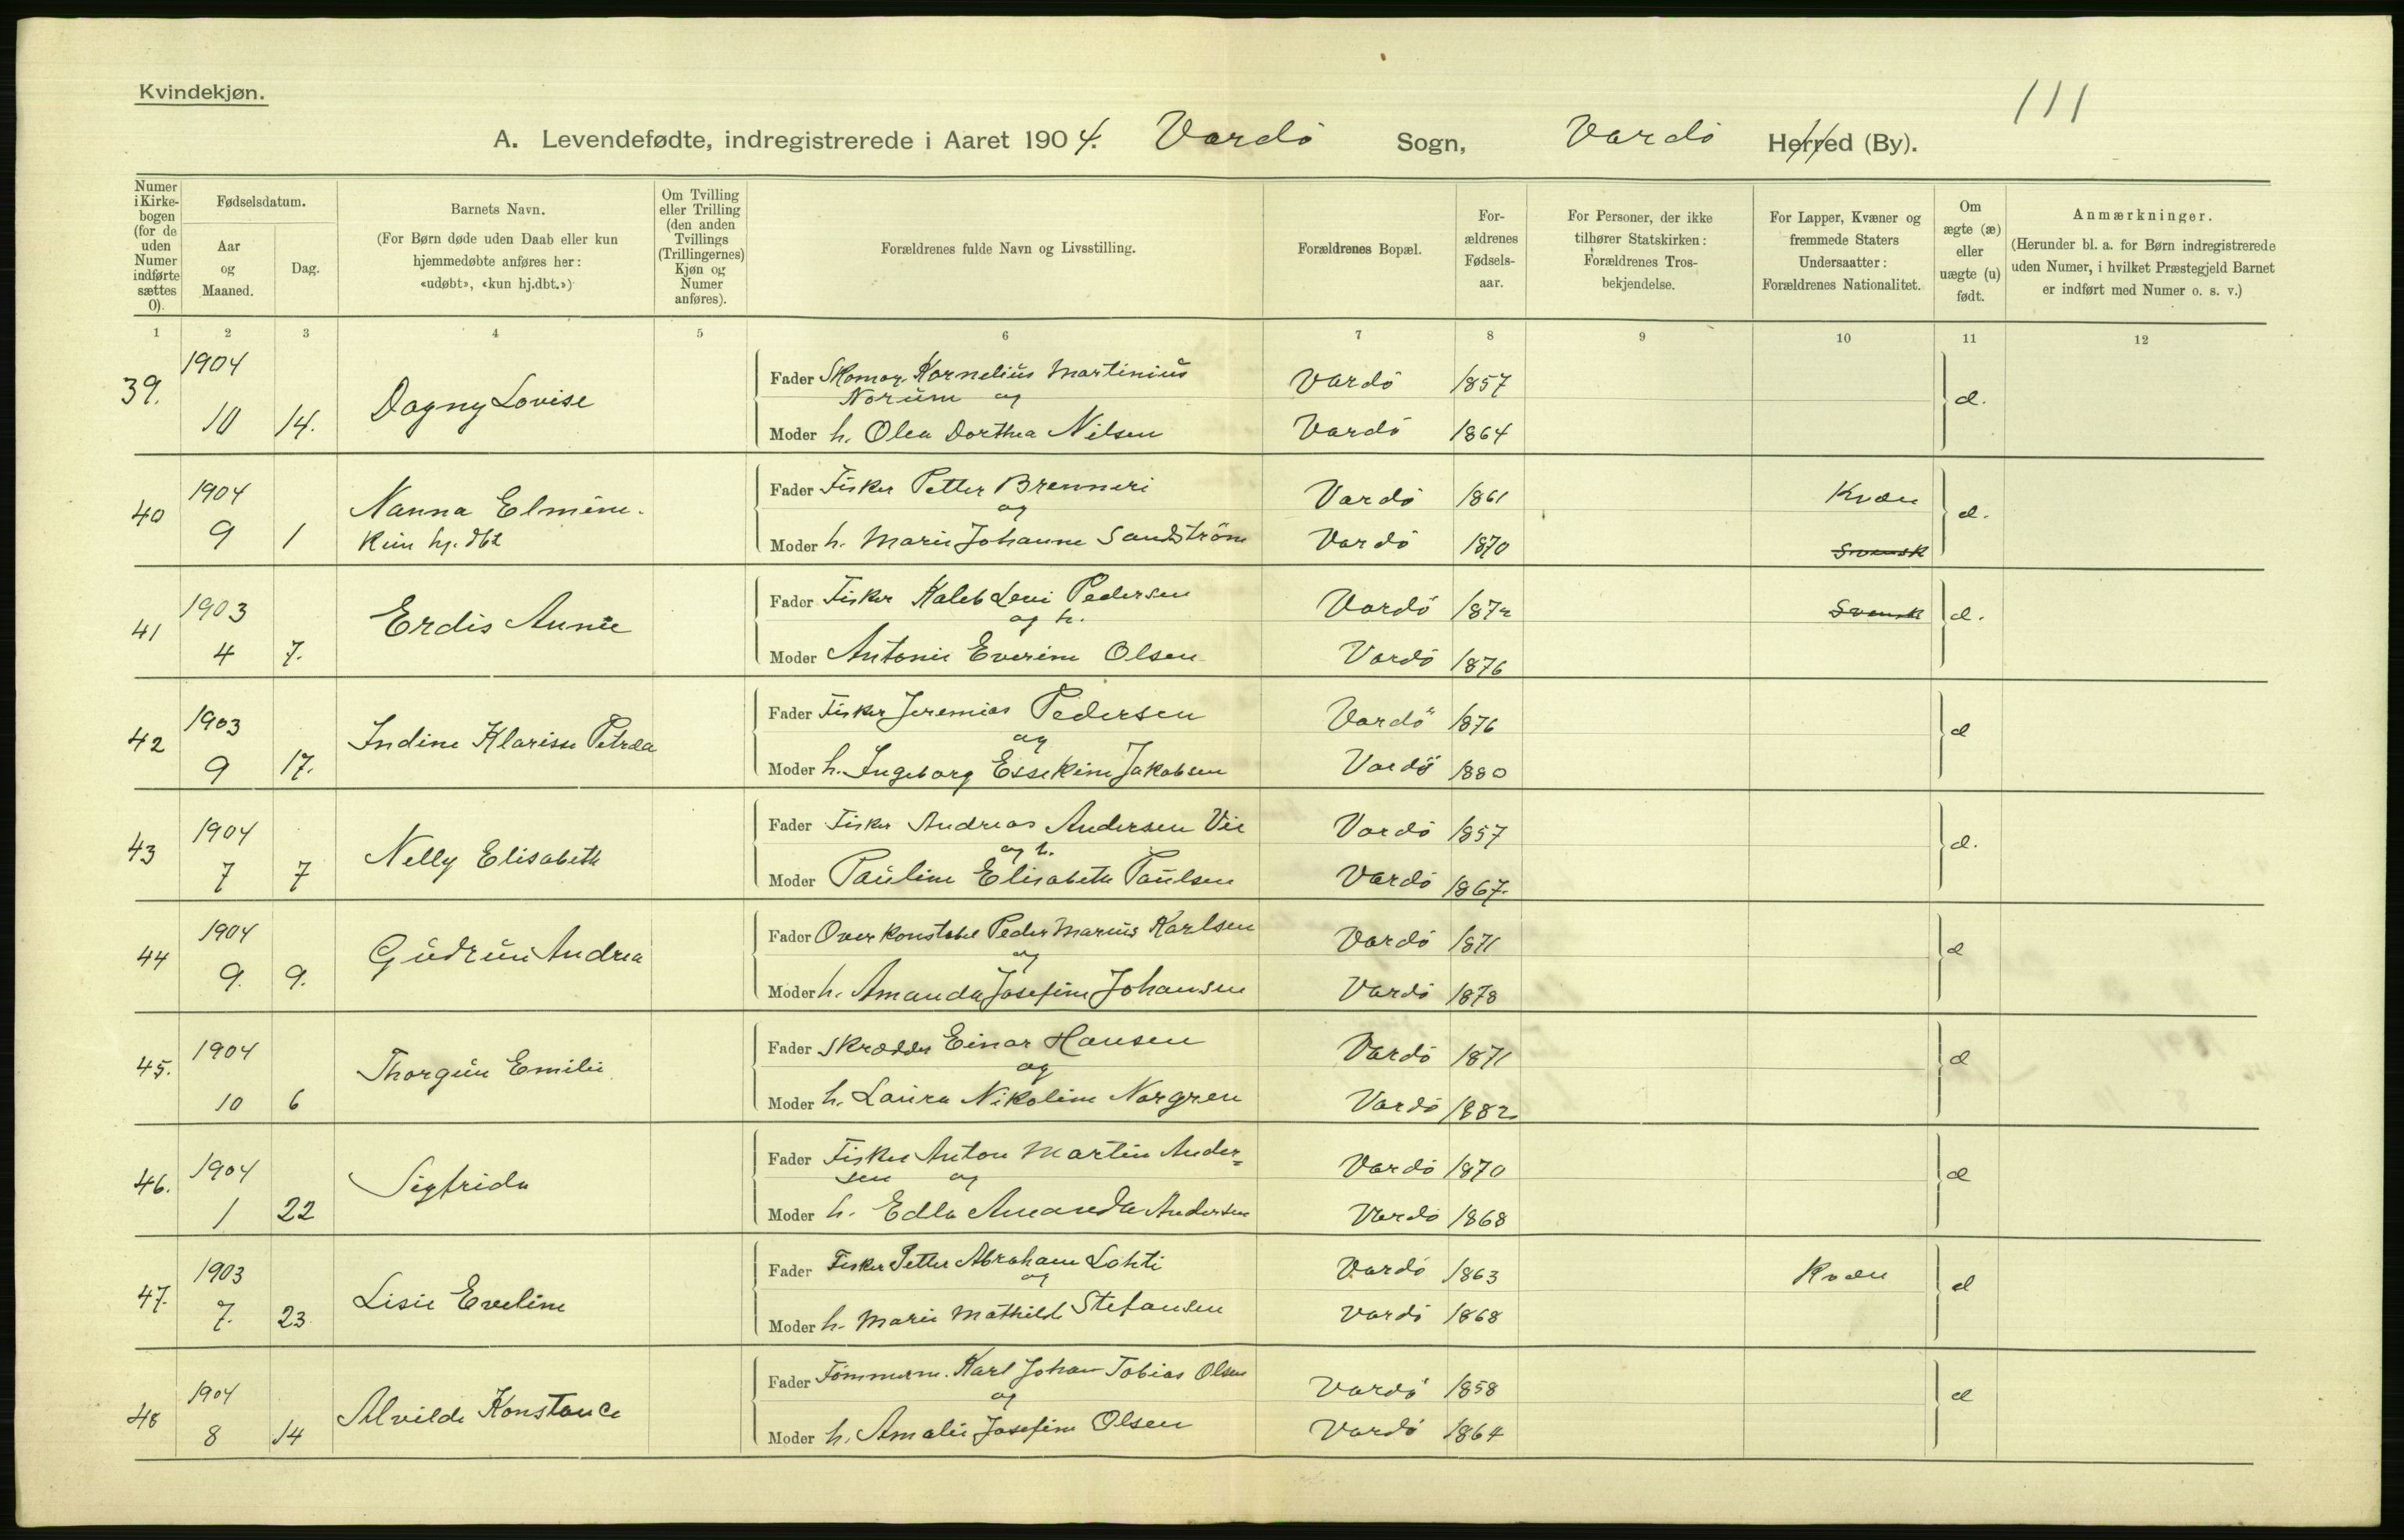 Kvindekjøn.
111
A. Levendefødte, indregistrerede i Aaret 1904. Vardö Sogn, Vardö Herred (By).
Numer i Kirkebogen (for de uden Numer indførte sættes 0).
Fødselsdatum.
Aar og Maaned.
Dag.
Barnets Navn.
(For Børn døde uden Daab eller kun hjemmedøbte anføres her: «udøbt», «kun hj.dbt.»)
Om Tvilling eller Trilling (den anden Tvillings (Trillingernes) Kjøn og Numer anføres).
Forældrenes fulde Navn og Livsstilling.
Forældrenes Bopæl.
Forældrenes Fødselsaar.
For Personer, der ikke tilhører Statskirken: Forældrenes Trosbekjendelse.
For Lapper, Kvæner og fremmede Staters Undersaatter: Forældrenes Nationalitet.
Om ægte (æ) eller uægte (u) født.
Anmærkninger.
(Herunder bl. a. for Børn indregistrerede uden Numer, i hvilket Præstegjeld Barnet er indført med Numer o. s. v.)
1 2 3 4 5 6 7 8 9 10 11 12
39. 1904 10 14. Dagny Lovise
Fader Skomag. Kornelius Martinius Norum og Vardö 1857 æ.
Moder h. Olea Dorthea Nilsen Vardö 1864
40 1904 9 1 Nanna Elmine. Kun hj. dbt
Fader Fisker Petter Brenneri og Vardö 1861 Kvæn æ.
Moder h. Marie Johanne Sandström Vardö 1870 Svensk
41 1903 4 7. Erdis Annie
Fader Fisker Kaleb Levi Pedersen og h. Vardö 1872 Svensk æ.
Moder Antonie Everine Olsen Vardö 1876
42 1903 9 17. Indine Klarisse Petrea
Fader Fisker Jeremias Pedersen og Vardö 1876 æ
Moder h. Ingeborg Essekine Jakobsen Vardö 1880
43 1904 7 7 Nelly Elisabeth
Fader Fisker Andreas Andersen Vie og h. Vardö 1857 æ.
Moder Pauline Elisabeth Paulsen Vardö 1867.
44 1904 9. 9. Gudrun Andrea
Fader Overkonstabel Peder Marius Karlsen og Vardö 1871 æ
Moder h. Amanda Josefine Johansen Vardö 1878
45. 1904 10 6 Thorgun Emilie
Fader Skrædder Einar Hansen og Vardö 1871 æ
Moder h. Laura Nikoline Norgren Vardö 1882
46. 1904 1 22 Sigfrida
Fader Fisker Anton Martin Andersen og Vardö 1870 æ
Moder h. Edla Amanda Andersen Vardö 1868
47. 1903 7. 23 Lisie Eveline
Fader Fisker Petter Abraham Lohti og Vardö 1863 Kvæn æ
Moder h. Marie Mathilde Stefansen Vardö 1868
48 1904 8 14 Alvilde Konstance
Fader Tømmerm. Karl Johan Tobias Olsen og Vardö 1858 æ
Moder h. Amalie Josefine Olsen Vardö 1864